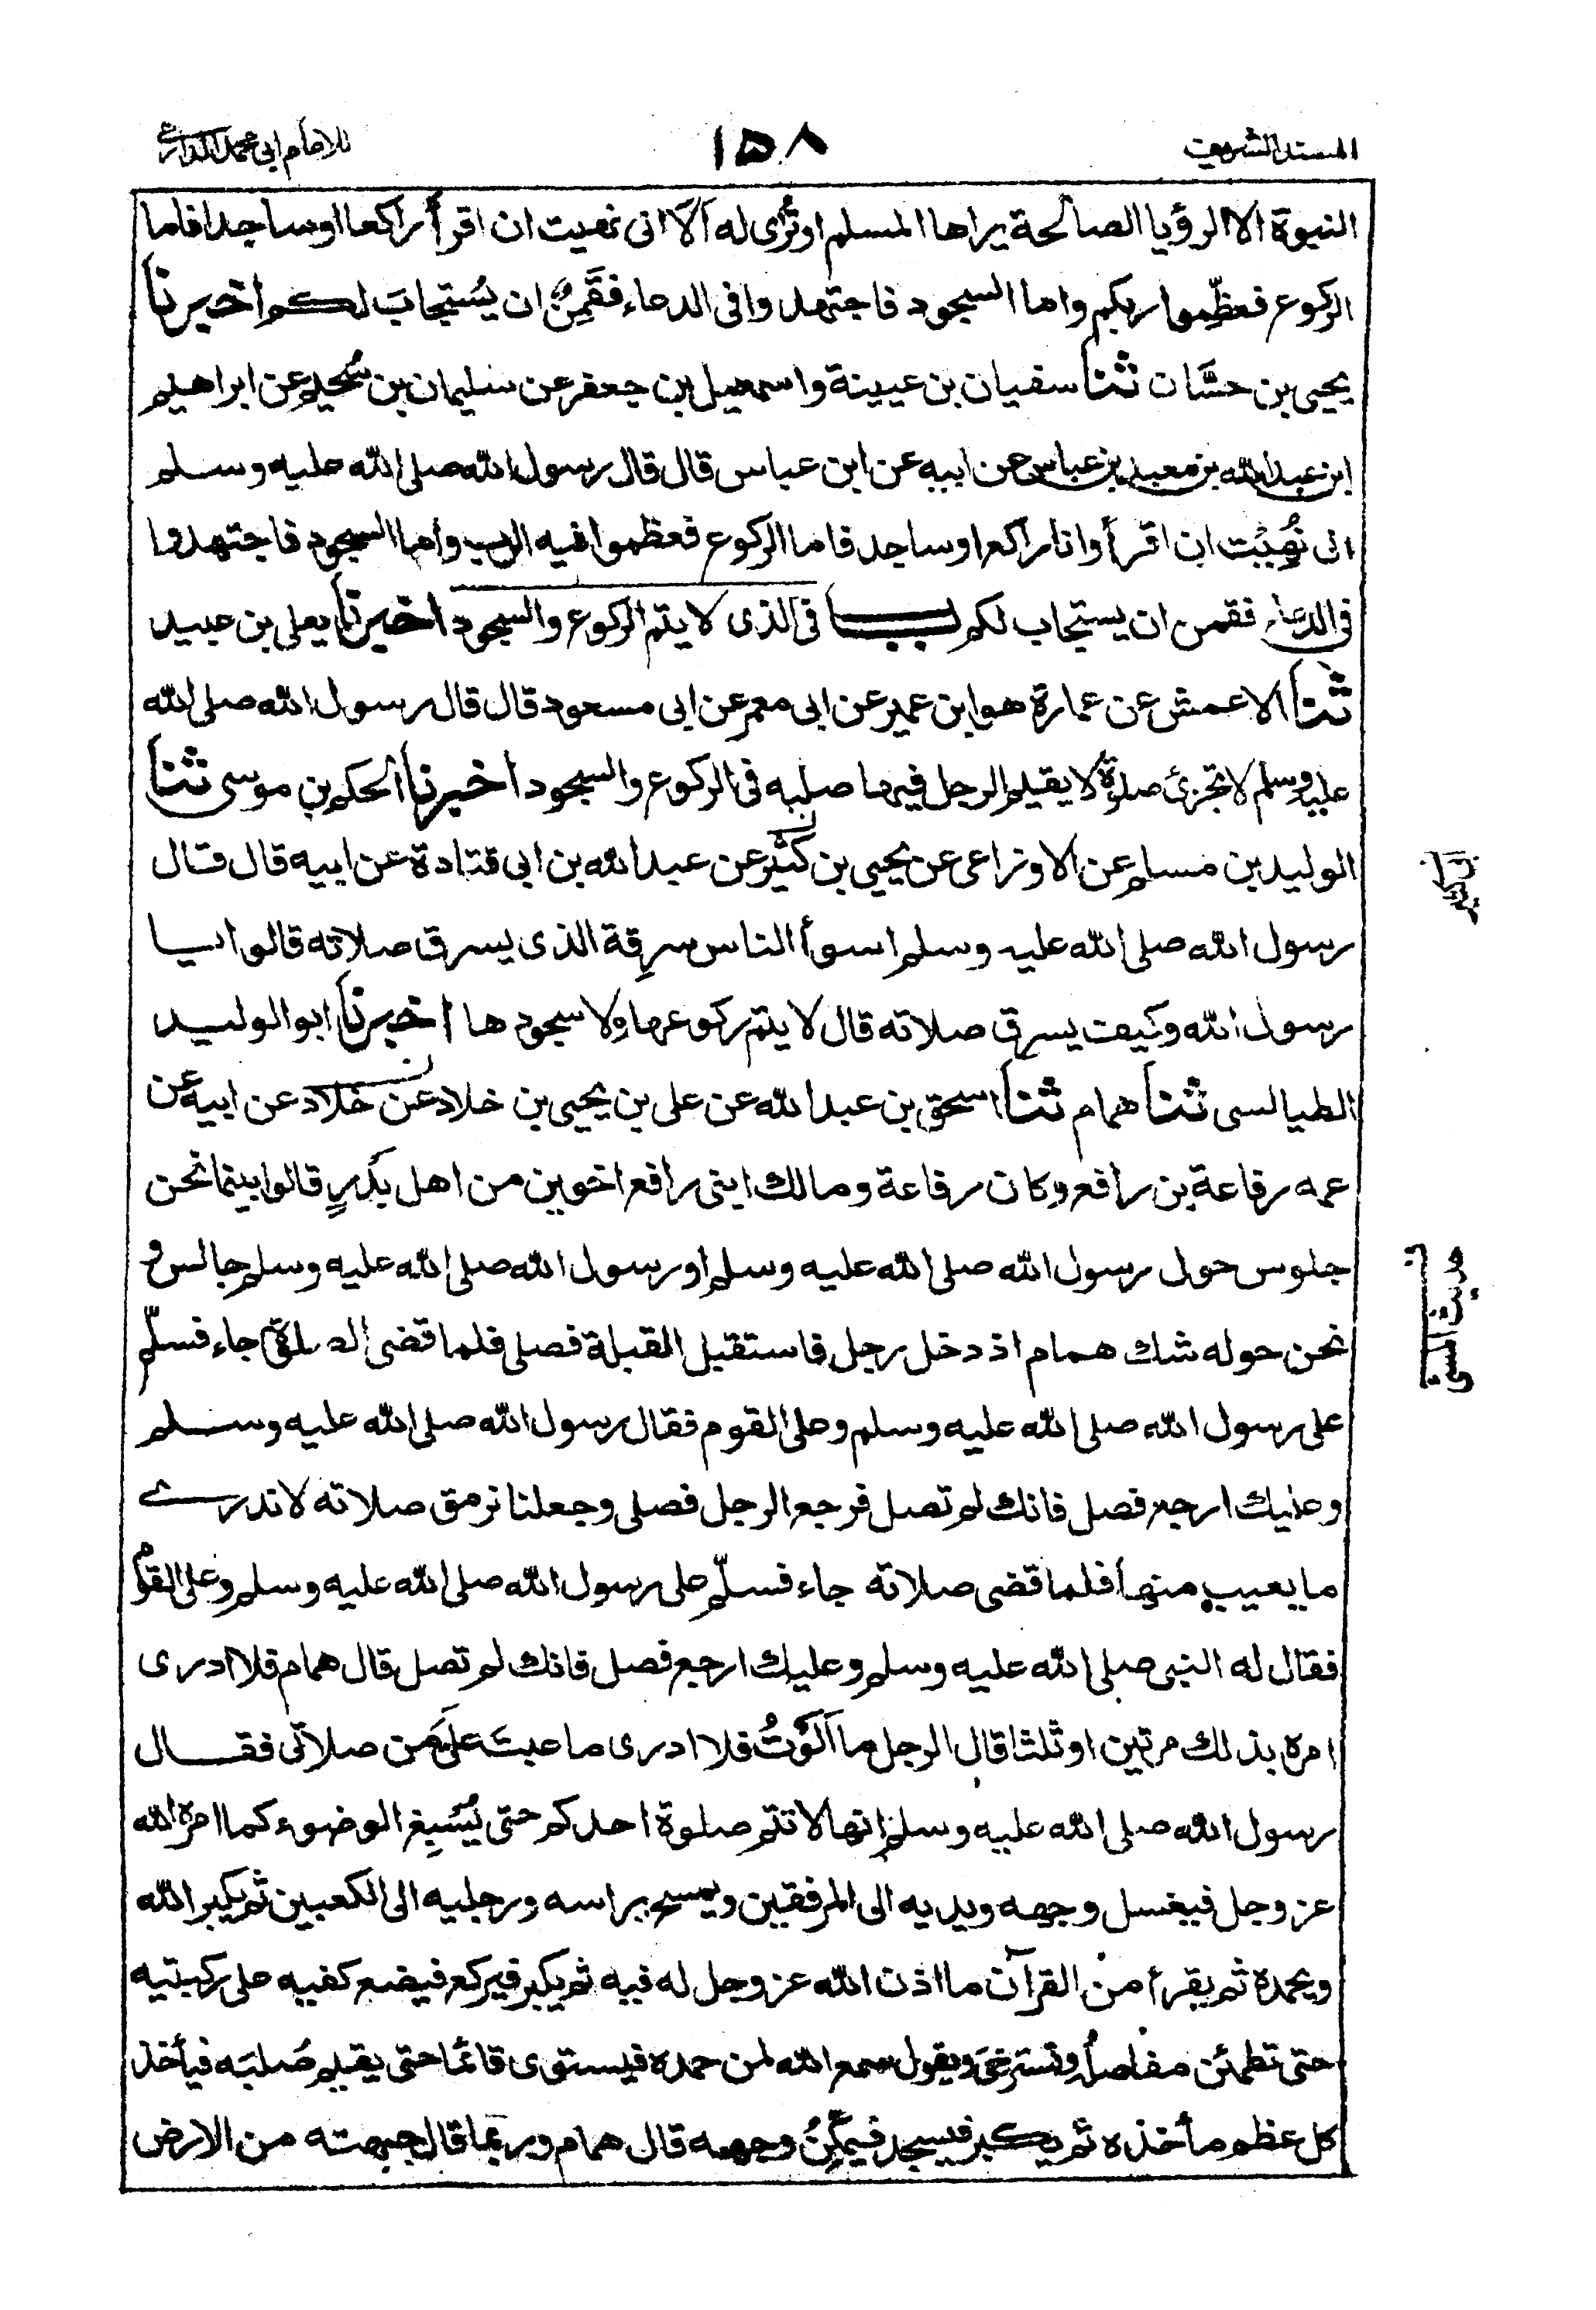 المسند الشريف ١٥٨ للامام ابى محمد الدارمى
النبوة الا الرؤيا الصالحة يراها المسلم او تُرٰى له اَلَا انى نهيت ان اقرأ راكعا او ساجدا فاما
الركوع فعظِّموا ربكم واما السجود فاجتهدوا فى الدعاء فقَمِنٌ ان يُستجابَ لكم اخبرنا
يحيى بن حسَّان ثنا سفيان بن عيينة واسمعيل بن جعفر عن سليمان بن سُحيم عن ابراهيم
ابن عبد الله بن معبد بن عباس عن ابيه عن ابن عباس قال قال رسول الله صلى الله عليه وسلم
انى نُهِيْت ان اقرأ وانا راكع او ساجد فاما الركوع فعظموا فيه الرب واما السجود فاجتهدوا
فى الدعاء فقمن ان يستجاب لكم باب فى الذى لا يتم الركوع والسجود اخبرنا يعلى بن عبيد
ثنا الاعمش عن عمارة هو ابن عمير عن ابى معمر عن ابى مسعود قال قال رسول الله صلى الله
عليه وسلم لا تجزئ صلوة لا يقيم الرجل فيها صلبه فى الركوع والسجود اخبرنا الحكم بن موسى ثنا
الوليد بن مسلم عن الاوزاعى عن يحيى بن كثير عن عبد الله بن ابى قتادة عن ابيه قال قال
رسول الله صلى الله عليه وسلم اسوأ الناس سرِقة الذى يسرق صلاته قالوا يا
رسول الله وكيف يسرق صلاته قال لا يتم ركوعها ولا سجودها اخبرنا ابو الوليد
الطيالسى ثنا همام ثنا اسحق بن عبد الله عن على بن يحيى بن خلاد عن خلاد عن ابيه عن
عمه رفاعة بن رافع وكان رفاعة ومالك ابنى رافع اخوين من اهل بَدرٍ قالوا بينما نحن
جلوس حول رسول الله صلى الله عليه وسلم او رسول الله صلى الله عليه وسلم جالس و
نحن حوله شك همام اذ دخل رجل فاستقبل القبلة فصلى فلما قضى الصلوة جاء فسلّم
على رسول الله صلى الله عليه وسلم وعلى القوم فقال رسول الله صلى الله عليه وسلم
وعليك ارجع فصل فانك لم تصل فرجع الرجل فصلى وجعلنا نرمق صلاته لا ندرى
ما يعيب منها فلما قضى صلاته جاء فسلّم على رسول الله صلى الله عليه وسلم وعلى القوم
فقال له النبى صلى الله عليه وسلم وعليك ارجع فصل فانك لم تصل قال همام فلا ادرى
امره بذلك مرتين او ثلثا قال الرجل ما اَلَوْتُ فلا ادرى ما عبتَ علىَّ من صلاتى فقال
رسول الله صلى الله عليه وسلم انها لا تتم صلوة احدكم حتى يُسْبِغ الوضوء كما امره الله
عز وجل فيغسل وجهه ويديه الى المرفقين ويمسح براسه ورجليه الى الكعبين ثم يكبر الله
ويحمده ثم يقرأ من القرآن ما اذن الله عز وجل له فيه ثم يكبر فيركع فيضع كفيه على ركبتيه
حتى تطمئن مفاصله وتسترخىَ ويقول سمع الله لمن حمده فيستوى قائما حتى يقيم صُلبَه فيأخذ
كل عظم مأخذه ثم يكبر فيسجد فيمكِّنُ وجهه قال همام وربما قال جبهته من الارض
حديث المسئ